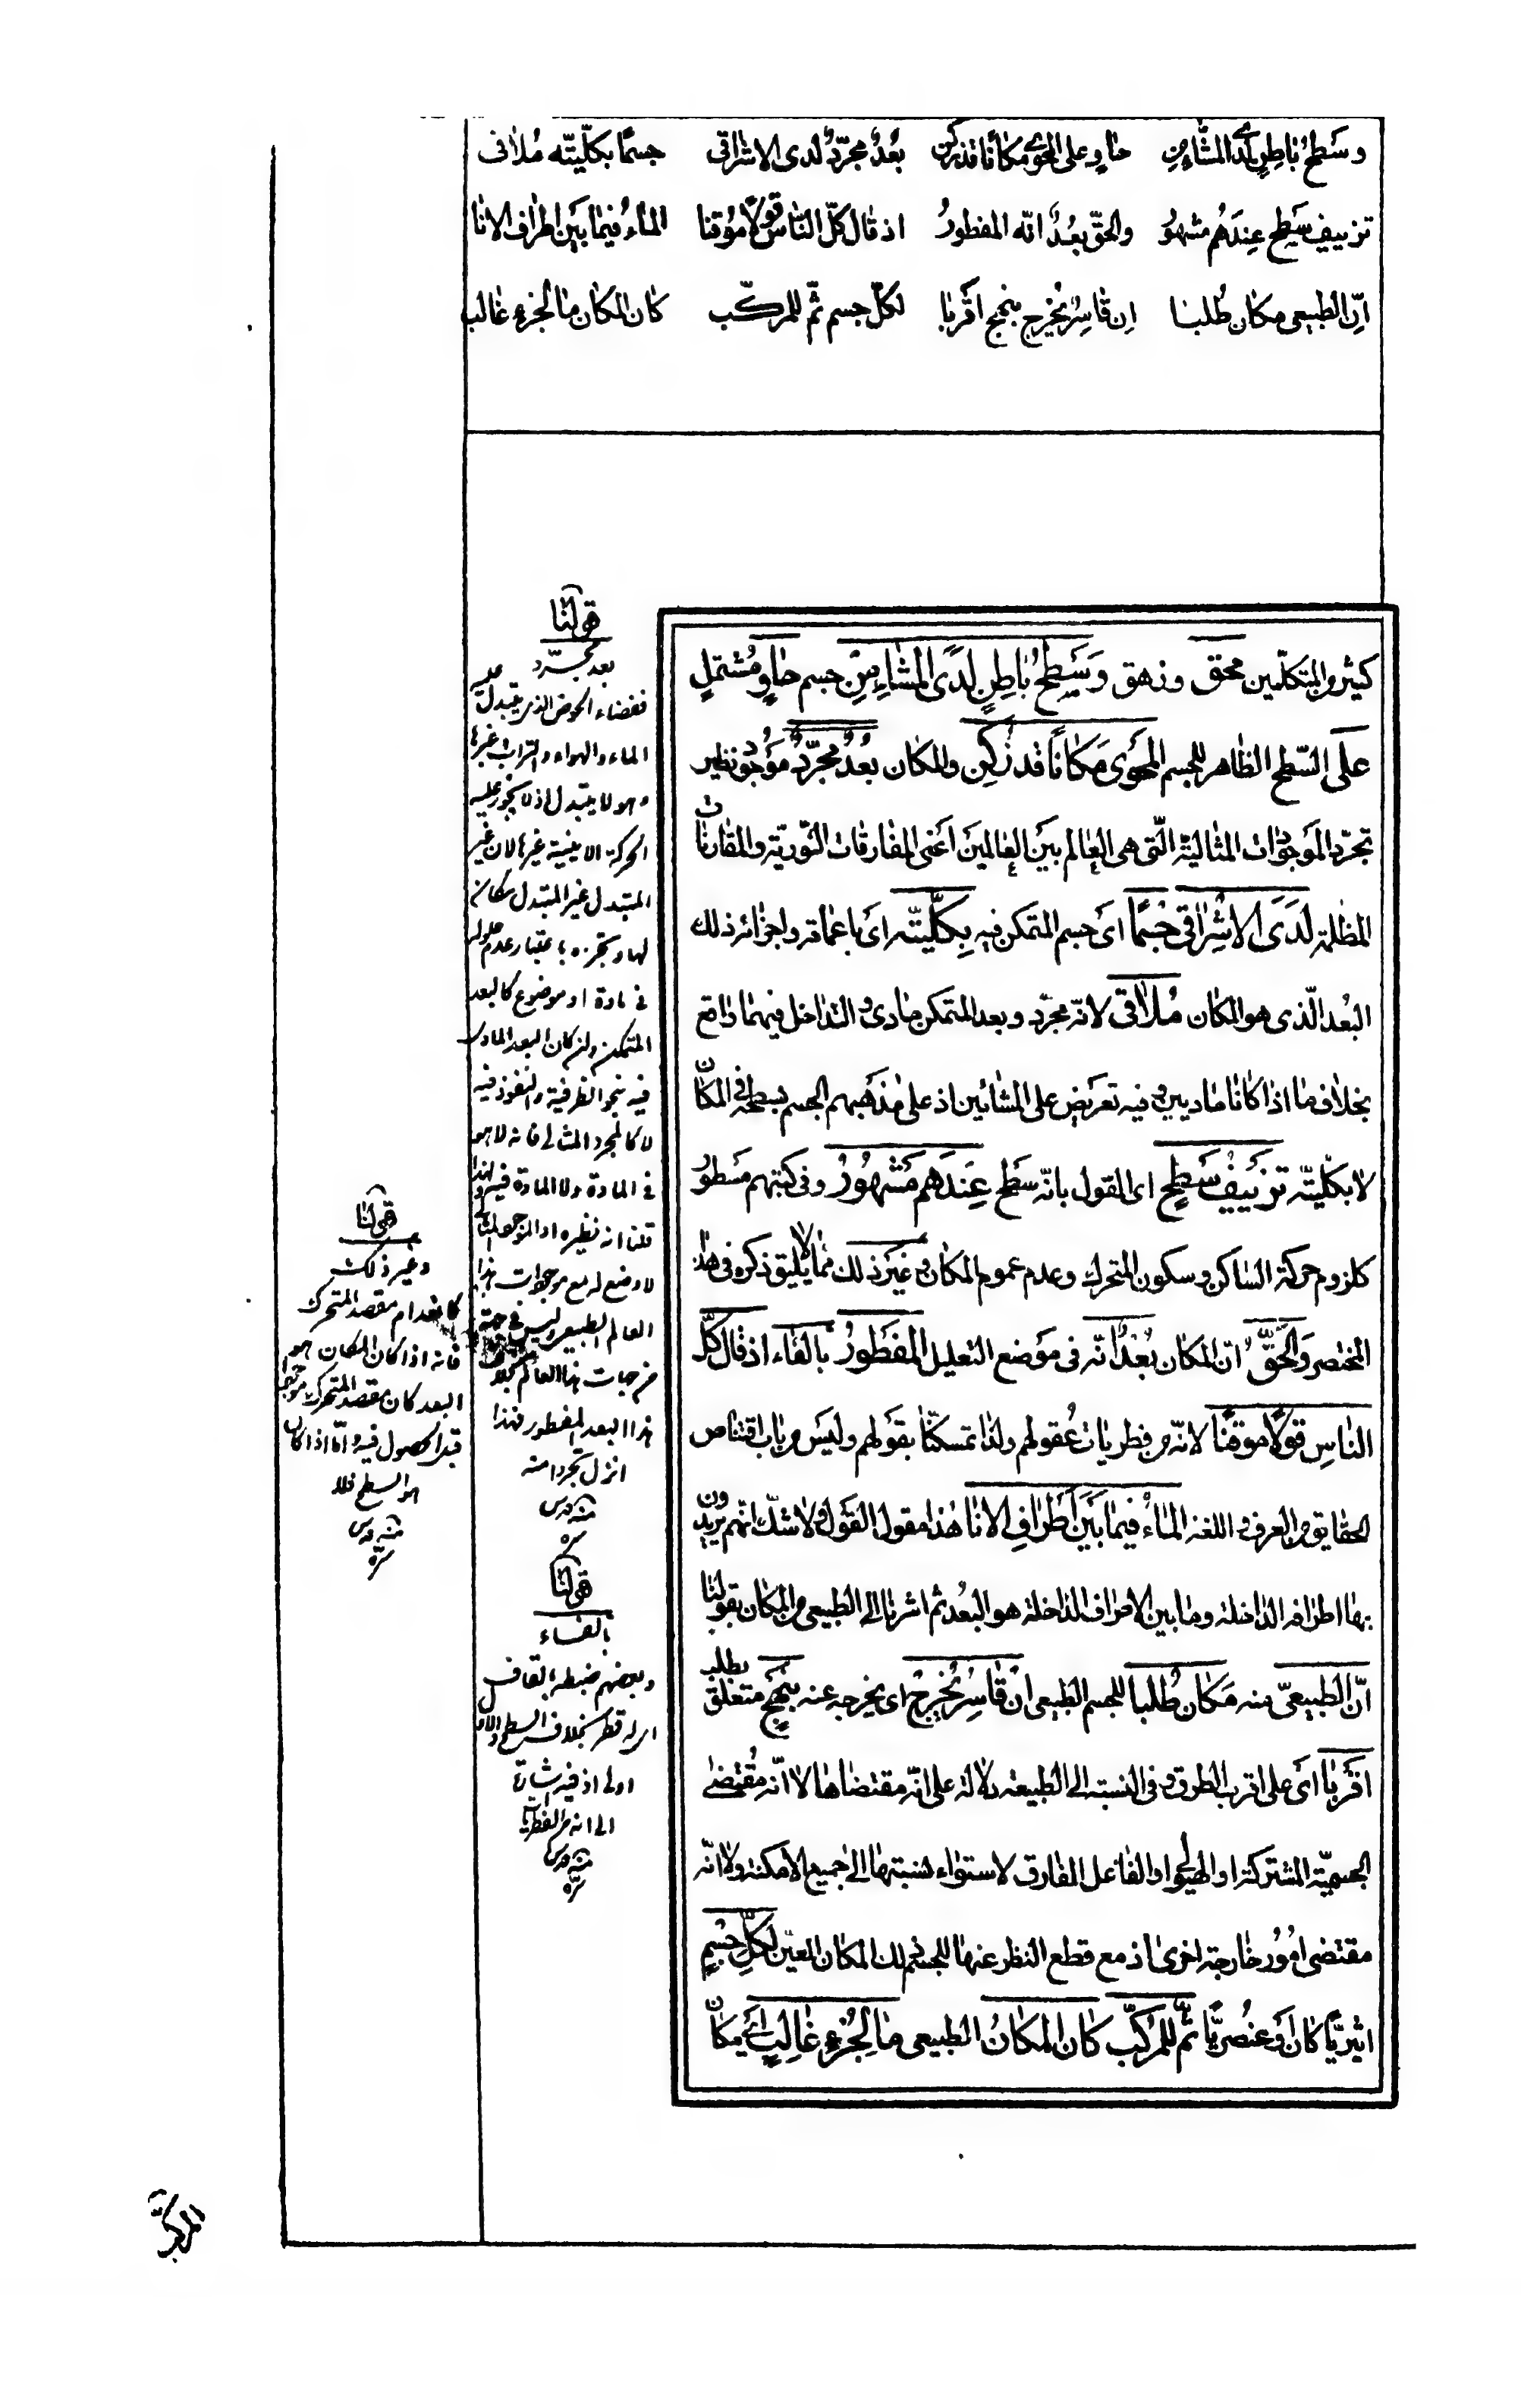 وسَطحُ بَاطِنٍ لَدى المشّاءِ مِن حَاوٍ على المَحوي مكانًا قد زكن بُعدٌ مجرّدٌ لدى الاشراقى جسمًا بكلّيّته مُلاقى
تزييف سَطحٍ عِندَهُم مشهورُ والحقّ بعُدٌ انّه المفطورُ اذ قال كلّ النّاس قولًا موُقنا الماءُ فيما بَين اطراف الانا
انّ الطبيعى مكان طُلبا اِن قاسرٌ يُخرج بنهج اقربا لكلّ جسم ثمّ للمركّب كان المكان ما لجزءٍ غالب
كثير من المتكلّمين محقق وزهق وَسَطحُ بَاطِنٍ لَدى المشّاءِ مِن جسم حَاوٍ مُشتملٍ
علَى السّطح الظّاهر للجسم المَحوى مَكانًا قد زُكِن والمكان بُعدٌ مجرّدٌ موَجُود نظير
تجرّد الموَجودات المثاليّة الّتى هى العالم بين العالمينَ اعَنى المفارقات النّوريّة والمقارنات
المظلمة لَدَى الاشِراقى جسًما اىَ جسم المتمكن فيه بِكلّيّته اىَ باعماقه واجزائه ذلك
البُعد الّذى هو المكان مُلاقى لانّه مجرّد وبعد المتمكن مادى والتداخل فيهما واقع
بخلاف ما اذا كانا ماديين وفيه تعريض على المشائين اذ على مذهبهم الجسم بسطحه فى المكان
لا بكليّته تزَييفُ سَطحٍ اى القول بانّه سَطح عِندَهم مَشهُورُ وفى كتبهم مسَطورُ
كلزوم حركة الساكن وسكون المتحرك وعدم عموم المكان وغَيرَ ذلك ممّا لا يليق ذكره فى هذا
المختصر وَالحَقّ انّ المكان بُعدٌ انّه فى موَضع التعليل المفَطورُ بالفاء اذ قال كلّ
النّاسِ قولًا موقنًا لانّه من فطريات عُقولهم ولذا تمسكنّا بقَولهم وليس من باب اقتناص
الحقايق من العرف واللغة الماءُ فيما بَينَ اَطرافِ الانا هذا مقول القَول ولا شكّ انّهم يريدون
بها اطرافه الداخلة وما بين الاطراف الداخلة هو البُعد ثم اشرنا الى الطبيعى من المكان بقولنا
انّ الطبيعىّ منه مَكان طُلبا للجسم الطبيعى ان قاسرٌ يُخرِجُ اى يخرجه عنه بنهجٍ متعلق بطلب
اقَربا اىَ على اقرب الطرق وفى النسبة الى الطبيعة دلالة على انّه مقتضاها لا انّه مُقتضى
الجسميّة المشتركة او الهيولى او الفاعل المفارق لاستواء نسبتها الى جميع الامكنة ولا انّه
مقتضى امُور خارجة اخرى اذ مع قطع النظر عنها للجسم ذلك المكان المعين لكلّ جسمٍ
اثيريًّا كان اوَ عنصريًّا ثمّ للمركّب كان المكانُ الطبيعى ما لجُزءٍ غالبٍ اىَ مكان
قولنا
بعد مجرّد
ففضاء الحوض الذى يتبدل عليه
الماء والهواء والتراب وغيرها
وهو لا يتبدل اذ لا يجوز عليه
الحركة الاينية غيرها لان غير
المتبدل غير المتبدل مكان
لها وتجرده باعتبار عدم حلوله
فى مادة او موضوع كالبعد
المتمكن وان كان البعد المادى
فيه بنحو الظرفية والنفوذ فيه
لا كالمجرد المثالى فانه لا هو
فى المادة ولا المادة فيه ولهذا
قلنا انه نظيره
لا وضع له مع موجودات هذا
العالم الطبيعى وليس فى جهة
من جهات هذا العالم بخلاف
هذا البعد المفطور فهذا
انزل تجردا منه
منه قدس
سره
قولنا
بالفاء
وبعضهم ضبطه بالقاف
اى له قطر بخلاف السطح والاول
اولى اذ فيه اشارة
الى انه من الفطريات
منه قدس
سره
قولنا
وغير ذلك
كانعدام مقصد المتحرك
فانه اذا كان المكان هو
البعد كان مقصد المتحرك موجودا
قبل الحصول فيه وامّا اذا كان
هو السطح فلا
منه قدس
سره
المركّب